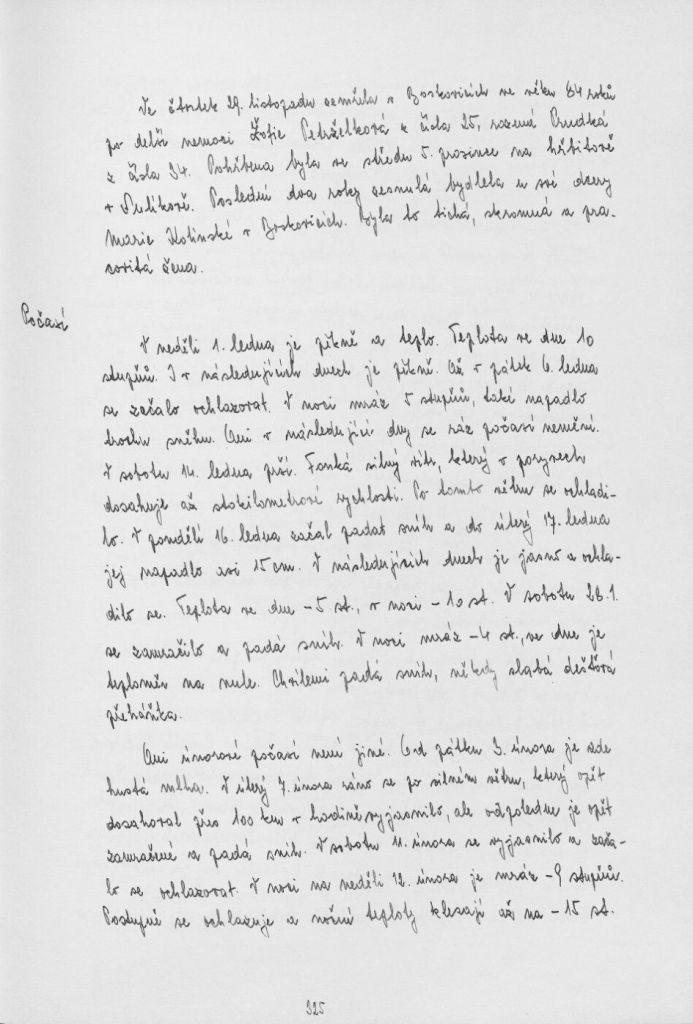 Ve čtvrtek 29. listopadu zemřela v Boskovicích ve věku 84 roků
po delší nemoci Žofie Petrželková z čísla 25, rozená Prudká
z čísla 34. Pohřbena byla ve středu 5. prosince na hřbitově
v Sulíkově. Poslední dva roky zesnulá bydlela u své dcery
Marie Kolínské v Boskovicích. Byla to tichá, skromná a pra-
covitá žena.
Počasí
V neděli 1. ledna je pěkně a teplo. Teplota ve dne 10
stupňů. I v následujících dnech je pěkně. Až v pátek 6. ledna
se začalo ochlazovat. V noci mráz 5 stupňů, také napadlo
trochu sněhu. Ani v následující dny se ráz počasí nemění.
V sobotu 14. ledna prší. Fouká silný vítr, který v poryvech
dosahuje až stokilometrové rychlosti. Po tomto větru se ochladi-
lo. V pondělí 16. ledna začal padat sníh a do úterý 17. ledna
jej napadlo asi 15 cm. V následujících dnech je jasno a ochla-
dilo se. Teplota ve dne -5 st., v noci -10 st. V sobotu 28.1.
se zamračilo a padá sníh. V noci mráz -4 st., ve dne je
teploměr na nule. Chvílemi padá sníh, někdy slabá dešťová
přeháňka.
Ani únorové počasí není jiné. Od pátku 3. února je zde
hustá mlha. V úterý 7. února ráno se po silném větru, který opět
dosahoval přes 100 km v hodině vyjasnilo, ale odpoledne je opět
zamračené a padá sníh. V sobotu 11. února se vyjasnilo a zača-
lo se ochlazovat. V noci na neděli 12. února je mráz -9 stupňů.
Postupně se ochlazuje a noční teploty klesají až na -15 st.
325